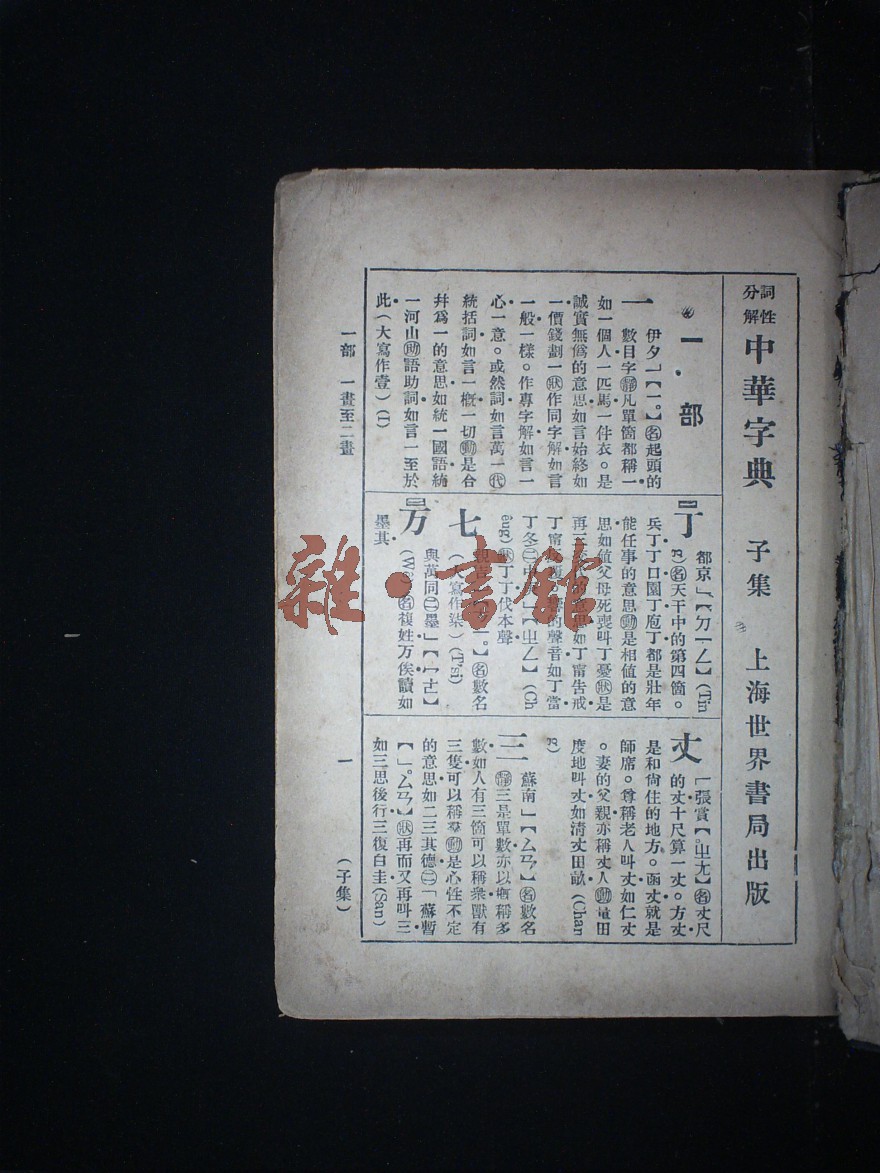 詞性分解 中華字典 子集 上海世界書局出版
一部
一 伊夕」【一。】㊔起頭的
數目字㊔凡單箇都稱一
如一個人一匹馬一件衣。是
誠實無僞的意思如言始終如
一價錢劃一㊔作同字解如言
一般一樣。作專字解如言一
心一意。或然詞如言萬一㊹
統括詞如言一概一切㊔是合
幷爲一的意思如統一國語統
一河山㊔語助詞如言一至於
此(大寫作壹)(I)
丁 都京」【ㄉㄧㄥ】(Tin
g)㊔天干中的第四箇。
兵丁丁口園丁庖丁都是壯年
能任事的意思㊔是相值的意
思如値父母死喪叫丁憂㊔是
的意思如丁甯告戒
的聲音如丁當
丁冬㊁中」【ㄓㄥ】(Ch
êng)㊔丁丁伐木聲
七 一。】㊔數名
(大寫作柒)(Tsi)
万 與萬同㊁墨」【ㄇ古】
(Wan)㊔複姓万俟讀如
墨其
丈 「張賞【。ㄓㄤ】㊔丈尺
的丈十尺算一丈。方丈
是和尙住的地方。函丈就是
師席。尊稱老人叫丈如仁丈
。妻的父親亦稱丈人㊔量田
度地叫丈如淸丈田畝(Chan
g)
三 蘇南」【ㄙㄢ】㊔數名
㊔三是單數亦以槪稱多
數如人有三箇可以稱衆獸有
三隻可以稱羣㊔是心性不定
的意思如二三其德㊁「蘇暫
【」。ㄙㄢ】㊔再而又再叫三
如三思後行三復白圭(San)
一部 一畫至二畫 一 (子集)
雜·書館